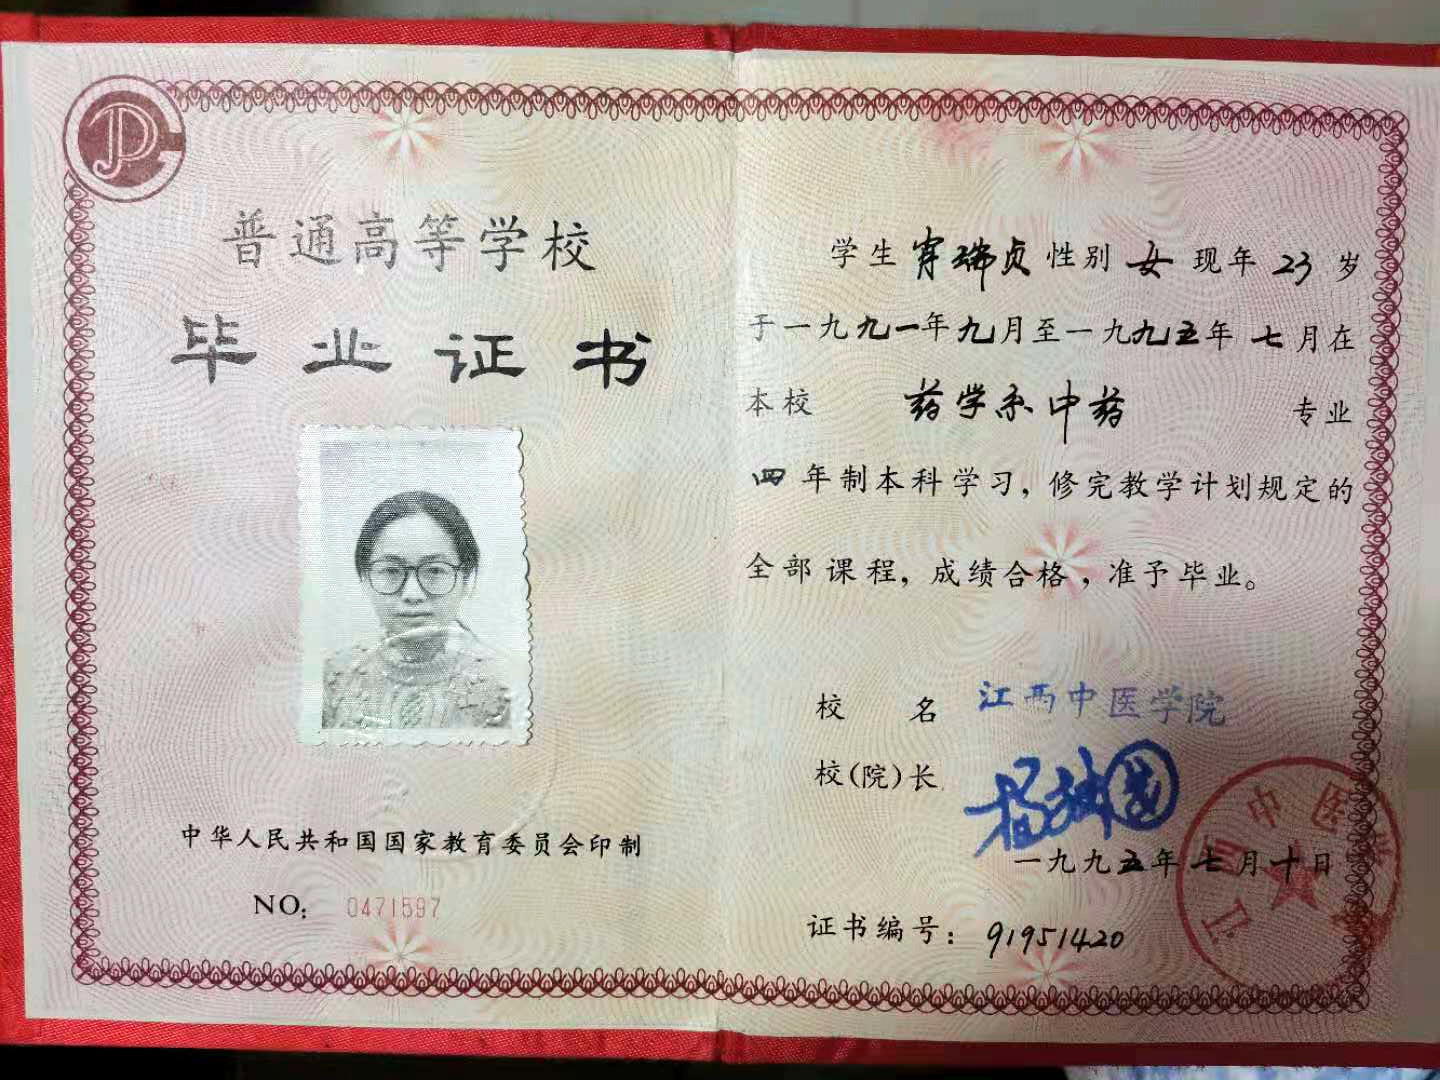 普通高等学校
毕业证书
中华人民共和国国家教育委员会印制
NO: 0471597
学生 肖瑞贞 性别 女 现年 23 岁
于一九九一年九月至一九九五年 七月在
本校 药学系中药 专业
四 年制本科学习，修完教学计划规定的
全部课程，成绩合格，准予毕业。
校 名 江西中医学院
校(院)长
一九九五年七月十日
证书编号: 91951420
江西中医学院